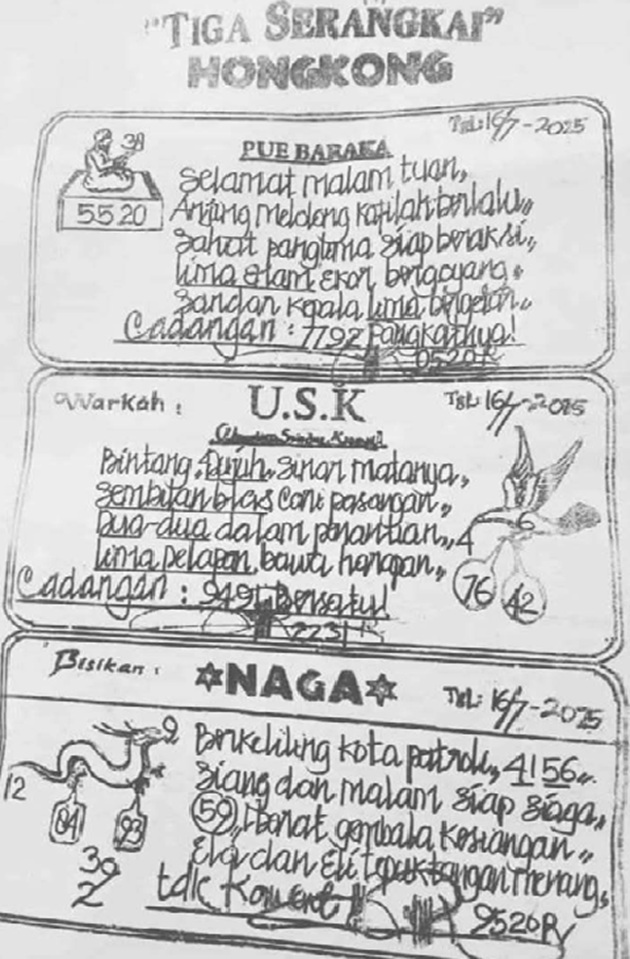 "TIGA SERANGKAI"
HONGKONG
Tgl: 16/7-2025
39
5520
PUE BARAKA
Selamat malam tuan,,
Anjing melolong kafilah berlalu,,
Sahut panglima siap beraksi,,
lima enam ekor bergoyang,,
Sandar kepala lima bergetar,,
Cadangan : 7792 Pangkatnya!
0520R
Warkah :
U.S.K
Tgl: 16/7-2025
Bintang Tujuh, sinar matanya,,
Sembilan blas cari pasangan,,
Dua-dua dalam penantian,,
lima pelapan bawa harapan,,
4
6
76 42
Cadangan : 9491 Bersatu!
2231
Bisikan :
NAGA
Tgl: 16/7-2025
9
12
04 93
39
2
Berkeliling kota patroli,, 4156,,
Siang dan malam siap siaga,,
59,, Ibarat gembala kesiangan,,
Ela dan Eli tepuk tangan menang,,
tdk
9520R